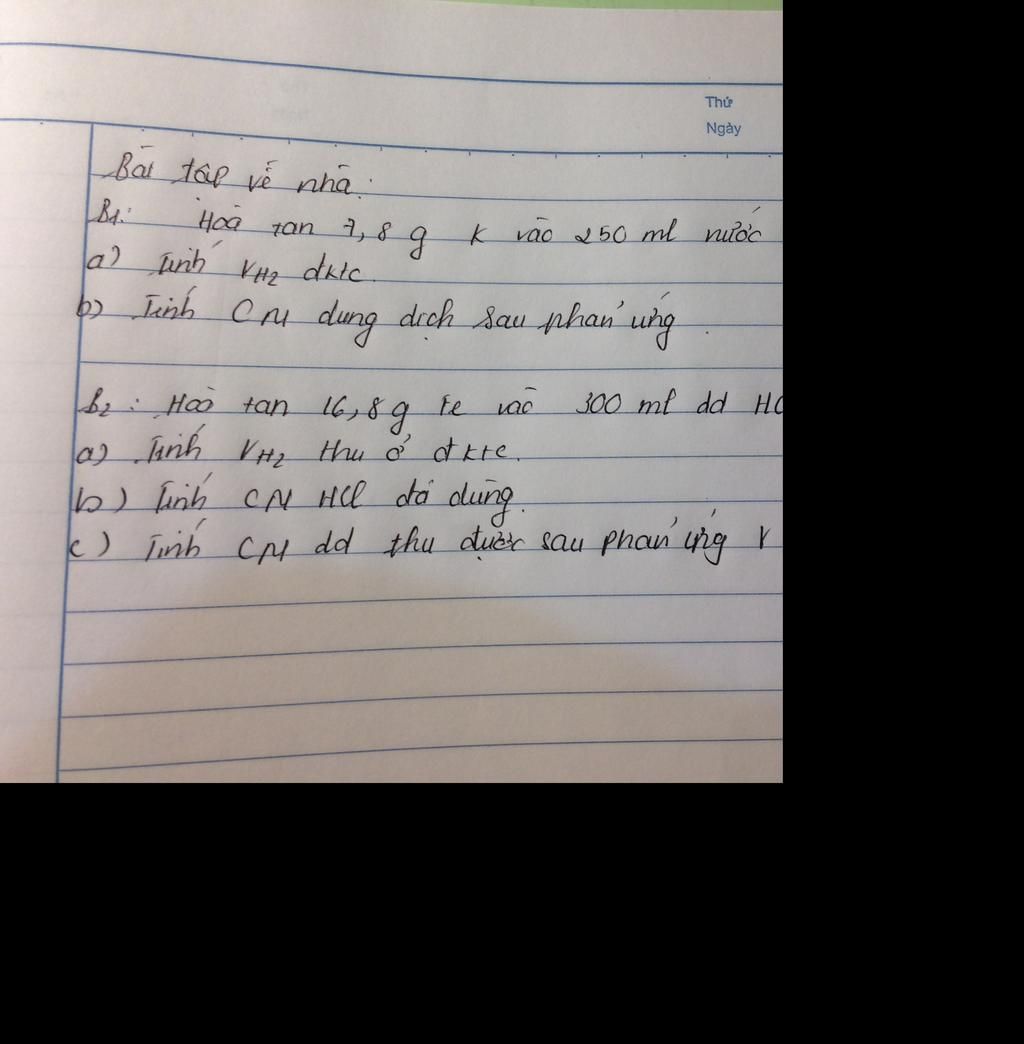 Thứ
Ngày
Bài tập về nhà:
B1: Hoà tan 7,8 g K vào 250 ml nước
a) Tính VH2 đktc.
b) Tính CM dung dịch sau phản ứng.
B2: Hoà tan 16,8 g Fe vào 300 ml dd HC
a) Tính VH2 thu ở đktc.
b) Tính CM HCl đã dùng.
c) Tính CM dd thu được sau phản ứng V